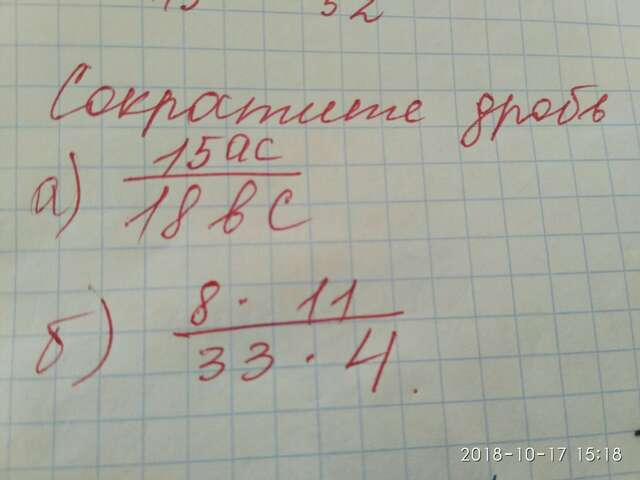 52
Сократите дробь
а) 15ac
18вc
б) 8 · 11
33 · 4.
2018-10-17 15:18